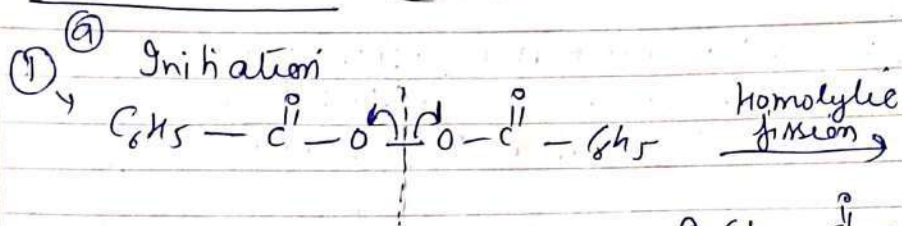 ① ⓐ Initiation
C6H5 — C(=O) — O — O — C(=O) — C6H5 Homolytic fission →